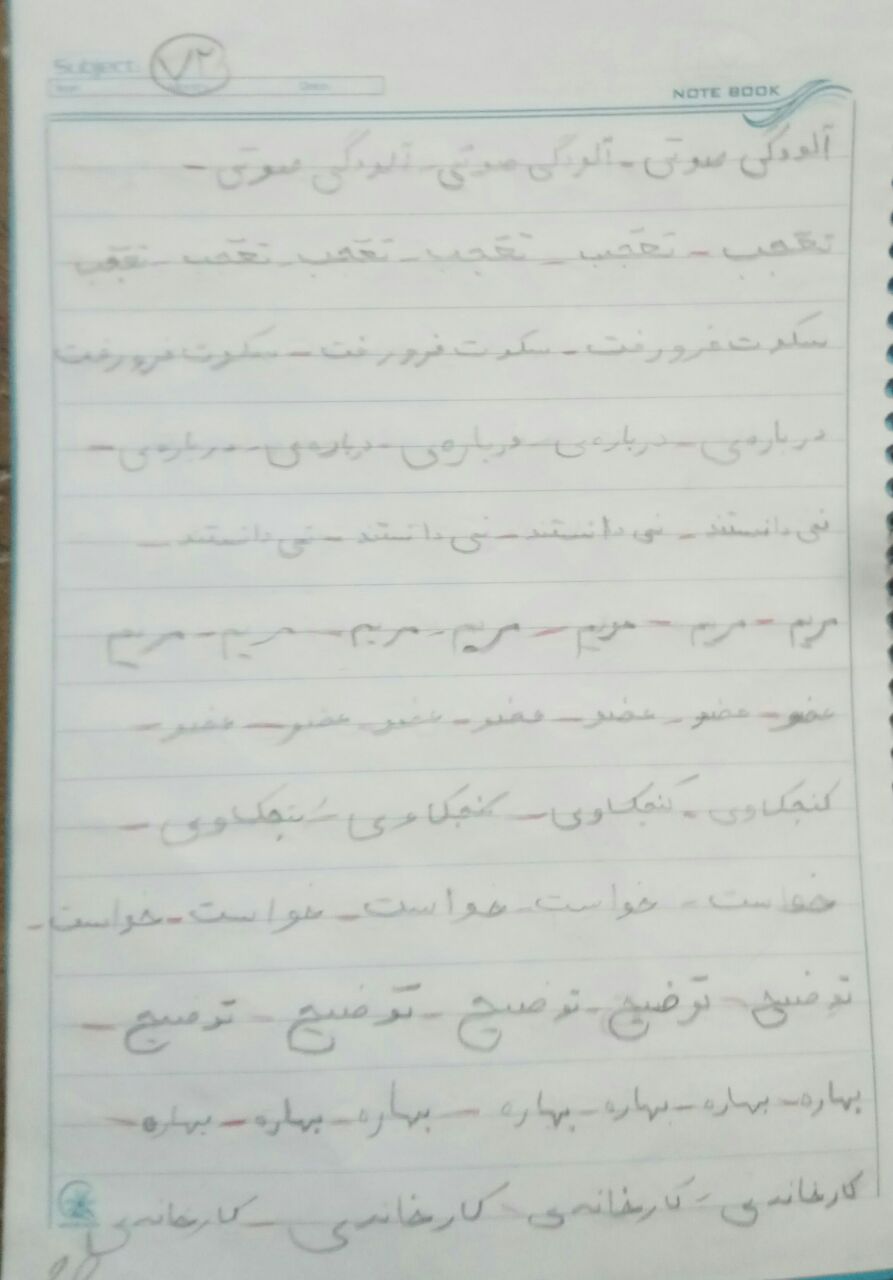 Subject:
۷۲
NOTE BOOK
آلودگی صوتی - آلودگی صوتی - آلودگی صوتی -
تعجب - تعجب - تعجب - تعجب - تعجب - تعجب
سکوت فرورفت - سکوت فرورفت - سکوت فرورفت
درباره‌ی - درباره‌ی - درباره‌ی - درباره‌ی - درباره‌ی -
نمی دانستند - نمی دانستند - نمی دانستند - نمی دانستند -
مریم - مریم - مریم - مریم - مریم - مریم - مریم
عضو - عضو - عضو - عضو - عضو - عضو - عضو -
کنجکاوی - کنجکاوی - کنجکاوی - کنجکاوی -
خواست - خواست - خواست - خواست - خواست -
توضیح - توضیح - توضیح - توضیح - توضیح -
بهاره - بهاره - بهاره - بهاره - بهاره - بهاره - بهاره -
کارخانه‌ی - کارخانه‌ی - کارخانه‌ی - کارخانه‌ی